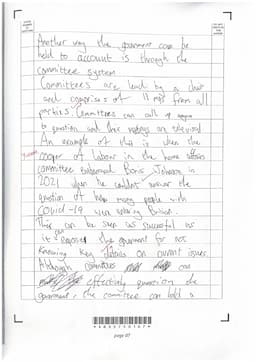 Another way the goverment can be
held to account is through the
committee system
Committees are lead by a chair
and comprises of 11 mps from all
parties. Committees can call
to question and their meetings are televised
An example of this is when the
cooper of Labour in the home affairs
committee embarrassed Boris Johnson in
2021 when he couldn't answer the
question of how many people with
COVID-19 were entering Britain.
This can be seen as successful as
it exposed the goverment for not
knowing key details on current issues.
Although committees can
effectively question the
goverment, the committee can hold a
page 07